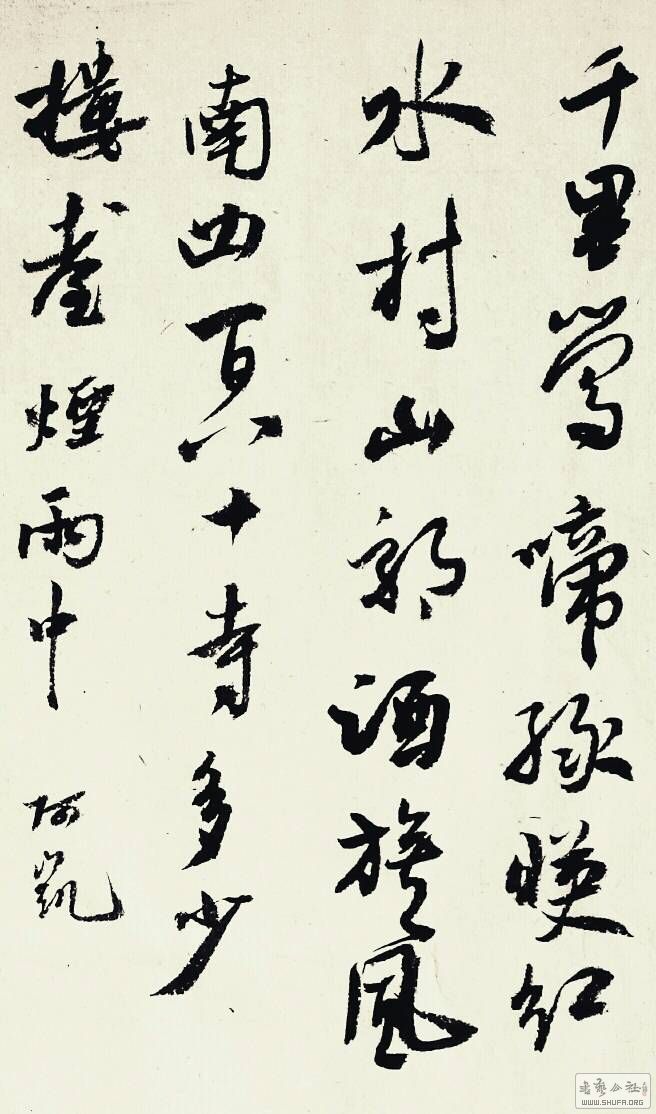 千里鶯啼綠暎紅
水村山郭酒旗風
南四百八十寺多少
樓臺煙雨中
阿凱
書藝公社
WWW.SHUFA.ORG